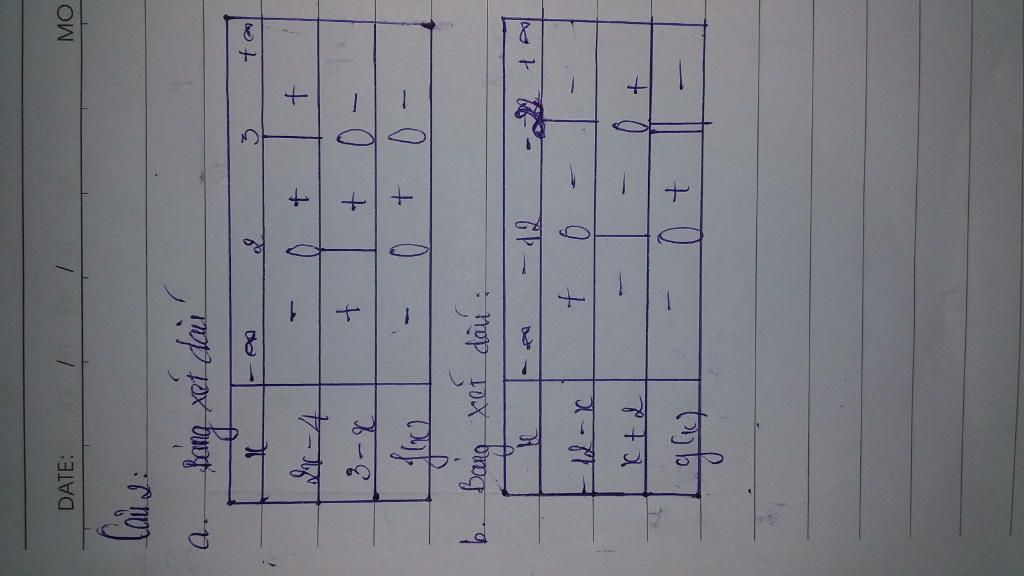 MO
DATE: / /
Câu 2:
a. Bảng xét dấu
x -∞ 2 3 +∞
2x-4 - 0 + | +
3-x + | + 0 -
f(x) - 0 + 0 -
b. Bảng xét dấu:
x -∞ -12 -2 +∞
-12-x + 0 - | -
x+2 - | - 0 +
g(x) - 0 + || -